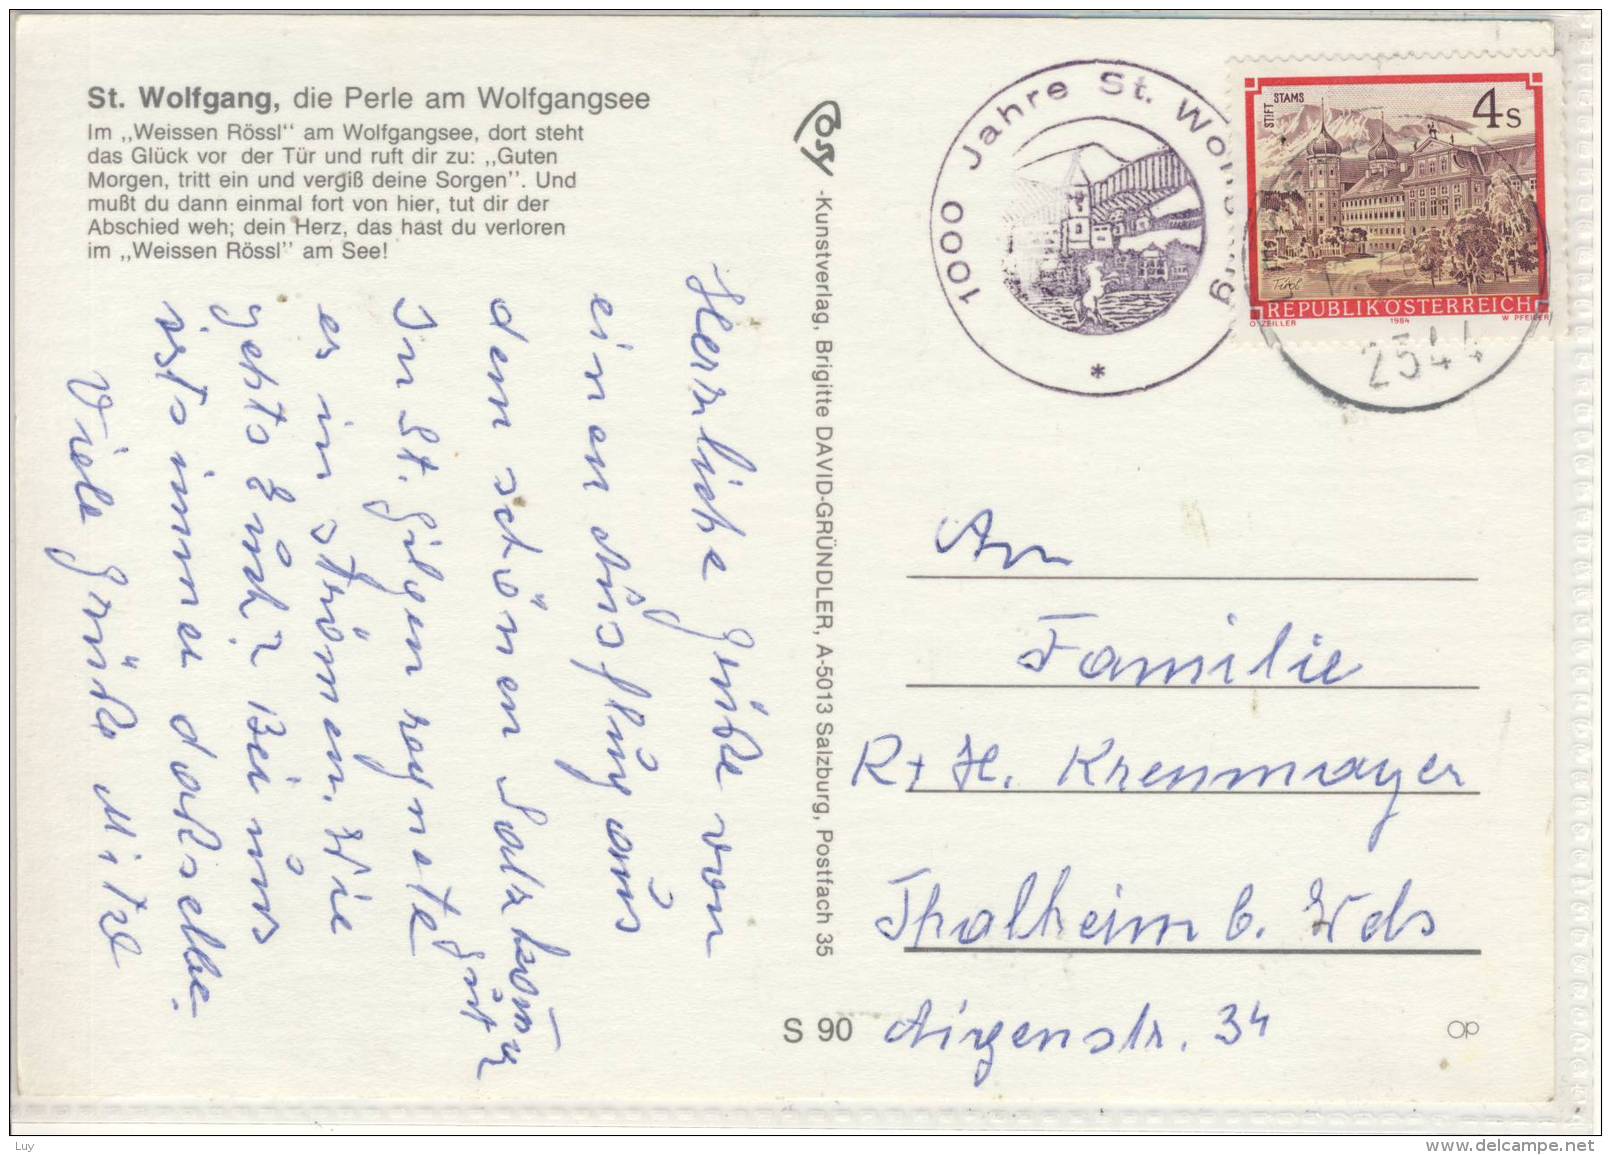 St. Wolfgang, die Perle am Wolfgangsee
Im „Weissen Rössl" am Wolfgangsee, dort steht
das Glück vor der Tür und ruft dir zu: „Guten
Morgen, tritt ein und vergiß deine Sorgen". Und
mußt du dann einmal fort von hier, tut dir der
Abschied weh; dein Herz, das hast du verloren
im „Weissen Rössl" am See!
Herzliche Grüße von
einem Ausflug aus
dem schönen Salzkam̄
gut
In St. Gilgen regnete
es in strömen. Wie
gehts Euch? Bei uns
ists immer dasselbe.
Viele Grüße Mitzl
COSY
-Kunstverlag, Brigitte DAVID-GRÜNDLER, A-5013 Salzburg, Postfach 35
S 90
1000 Jahre St. Wolfgang
*
STIFT STAMS
4 S
Tirol
REPUBLIK ÖSTERREICH
O. ZEILLER 1984 W. PFEILER
2544
An
Familie
R + H. Krenmayer
Thalheim b. Wels
Aigenstr. 34
OP
Luy
www.delcampe.net